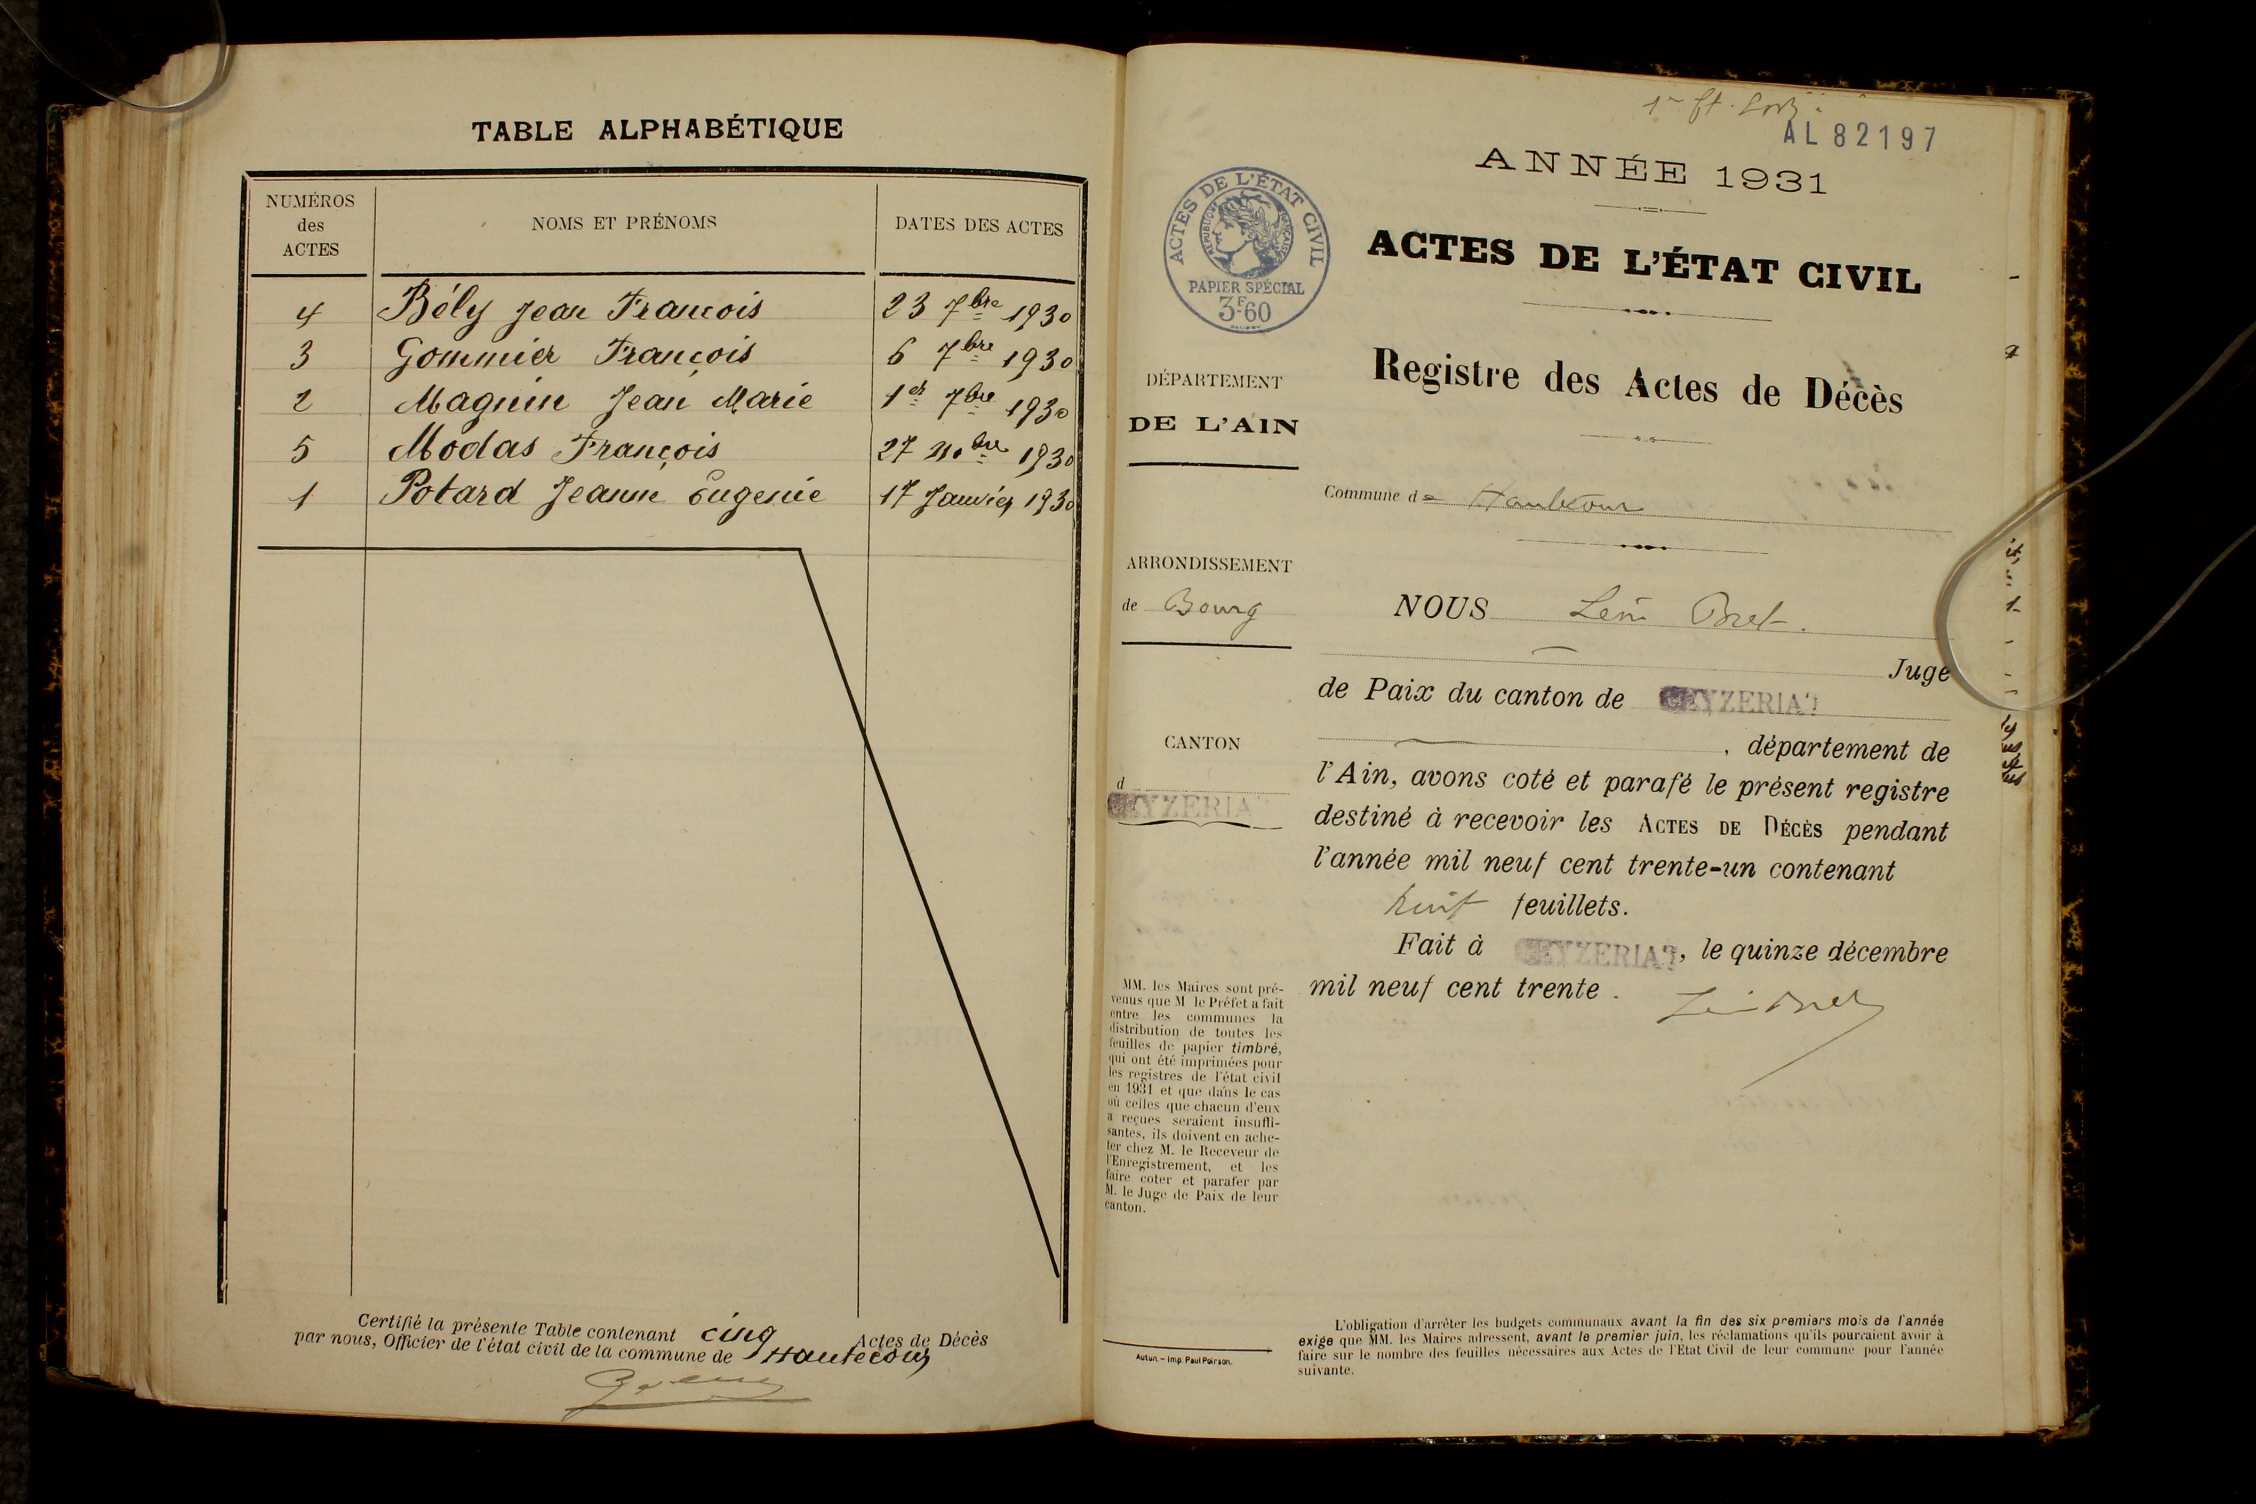 TABLE ALPHABÉTIQUE
NUMÉROS
des
ACTES
NOMS ET PRÉNOMS
DATES DES ACTES
4 Bély Jean Francois 23 7bre 1930
3 Gommier François 6 7bre 1930
2 Magnin Jean Marie 1er 7bre 1930
5 Modas François 27 9bre 1930
1 Potard Jeanne Eugenie 17 Janvier 1930
Certifié la présente Table contenant cinq Actes de Décès
par nous, Officier de l'état civil de la commune de Hautecour
AL 82197
ANNÉE 1931
ACTES DE L'ÉTAT CIVIL
RÉPUBLIQUE FRANÇAISE
PAPIER SPÉCIAL
3F60
ACTES DE L'ÉTAT CIVIL
Registre des Actes de Décès
DÉPARTEMENT
DE L'AIN
Commune de Hautecour
ARRONDISSEMENT
de Bourg
NOUS Léon Bret.
Juge
de Paix du canton de CEYZERIAT
CANTON
d
CEYZERIAT
, département de
l'Ain, avons coté et parafé le présent registre
destiné à recevoir les ACTES DE DÉCÈS pendant
l'année mil neuf cent trente-un contenant
huit feuillets.
Fait à CEYZERIAT, le quinze décembre
mil neuf cent trente.
MM. les Maires sont pré-
venus que M le Préfet a fait
entre les communes la
distribution de toutes les
feuilles de papier timbré,
qui ont été imprimées pour
les registres de l'état civil
en 1931 et que dans le cas
où celles que chacun d'eux
a reçues seraient insuffi-
santes, ils doivent en ache-
ter chez M. le Receveur de
l'Enregistrement, et les
faire coter et parafer par
M. le Juge de Paix de leur
canton.
Autun. – Imp. Paul Poirson.
L'obligation d'arrêter les budgets communaux avant la fin des six premiers mois de l'année
exige que MM. les Maires adressent, avant le premier juin, les réclamations qu'ils pourraient avoir à
faire sur le nombre des feuilles nécessaires aux Actes de l'Etat Civil de leur commune pour l'année
suivante.